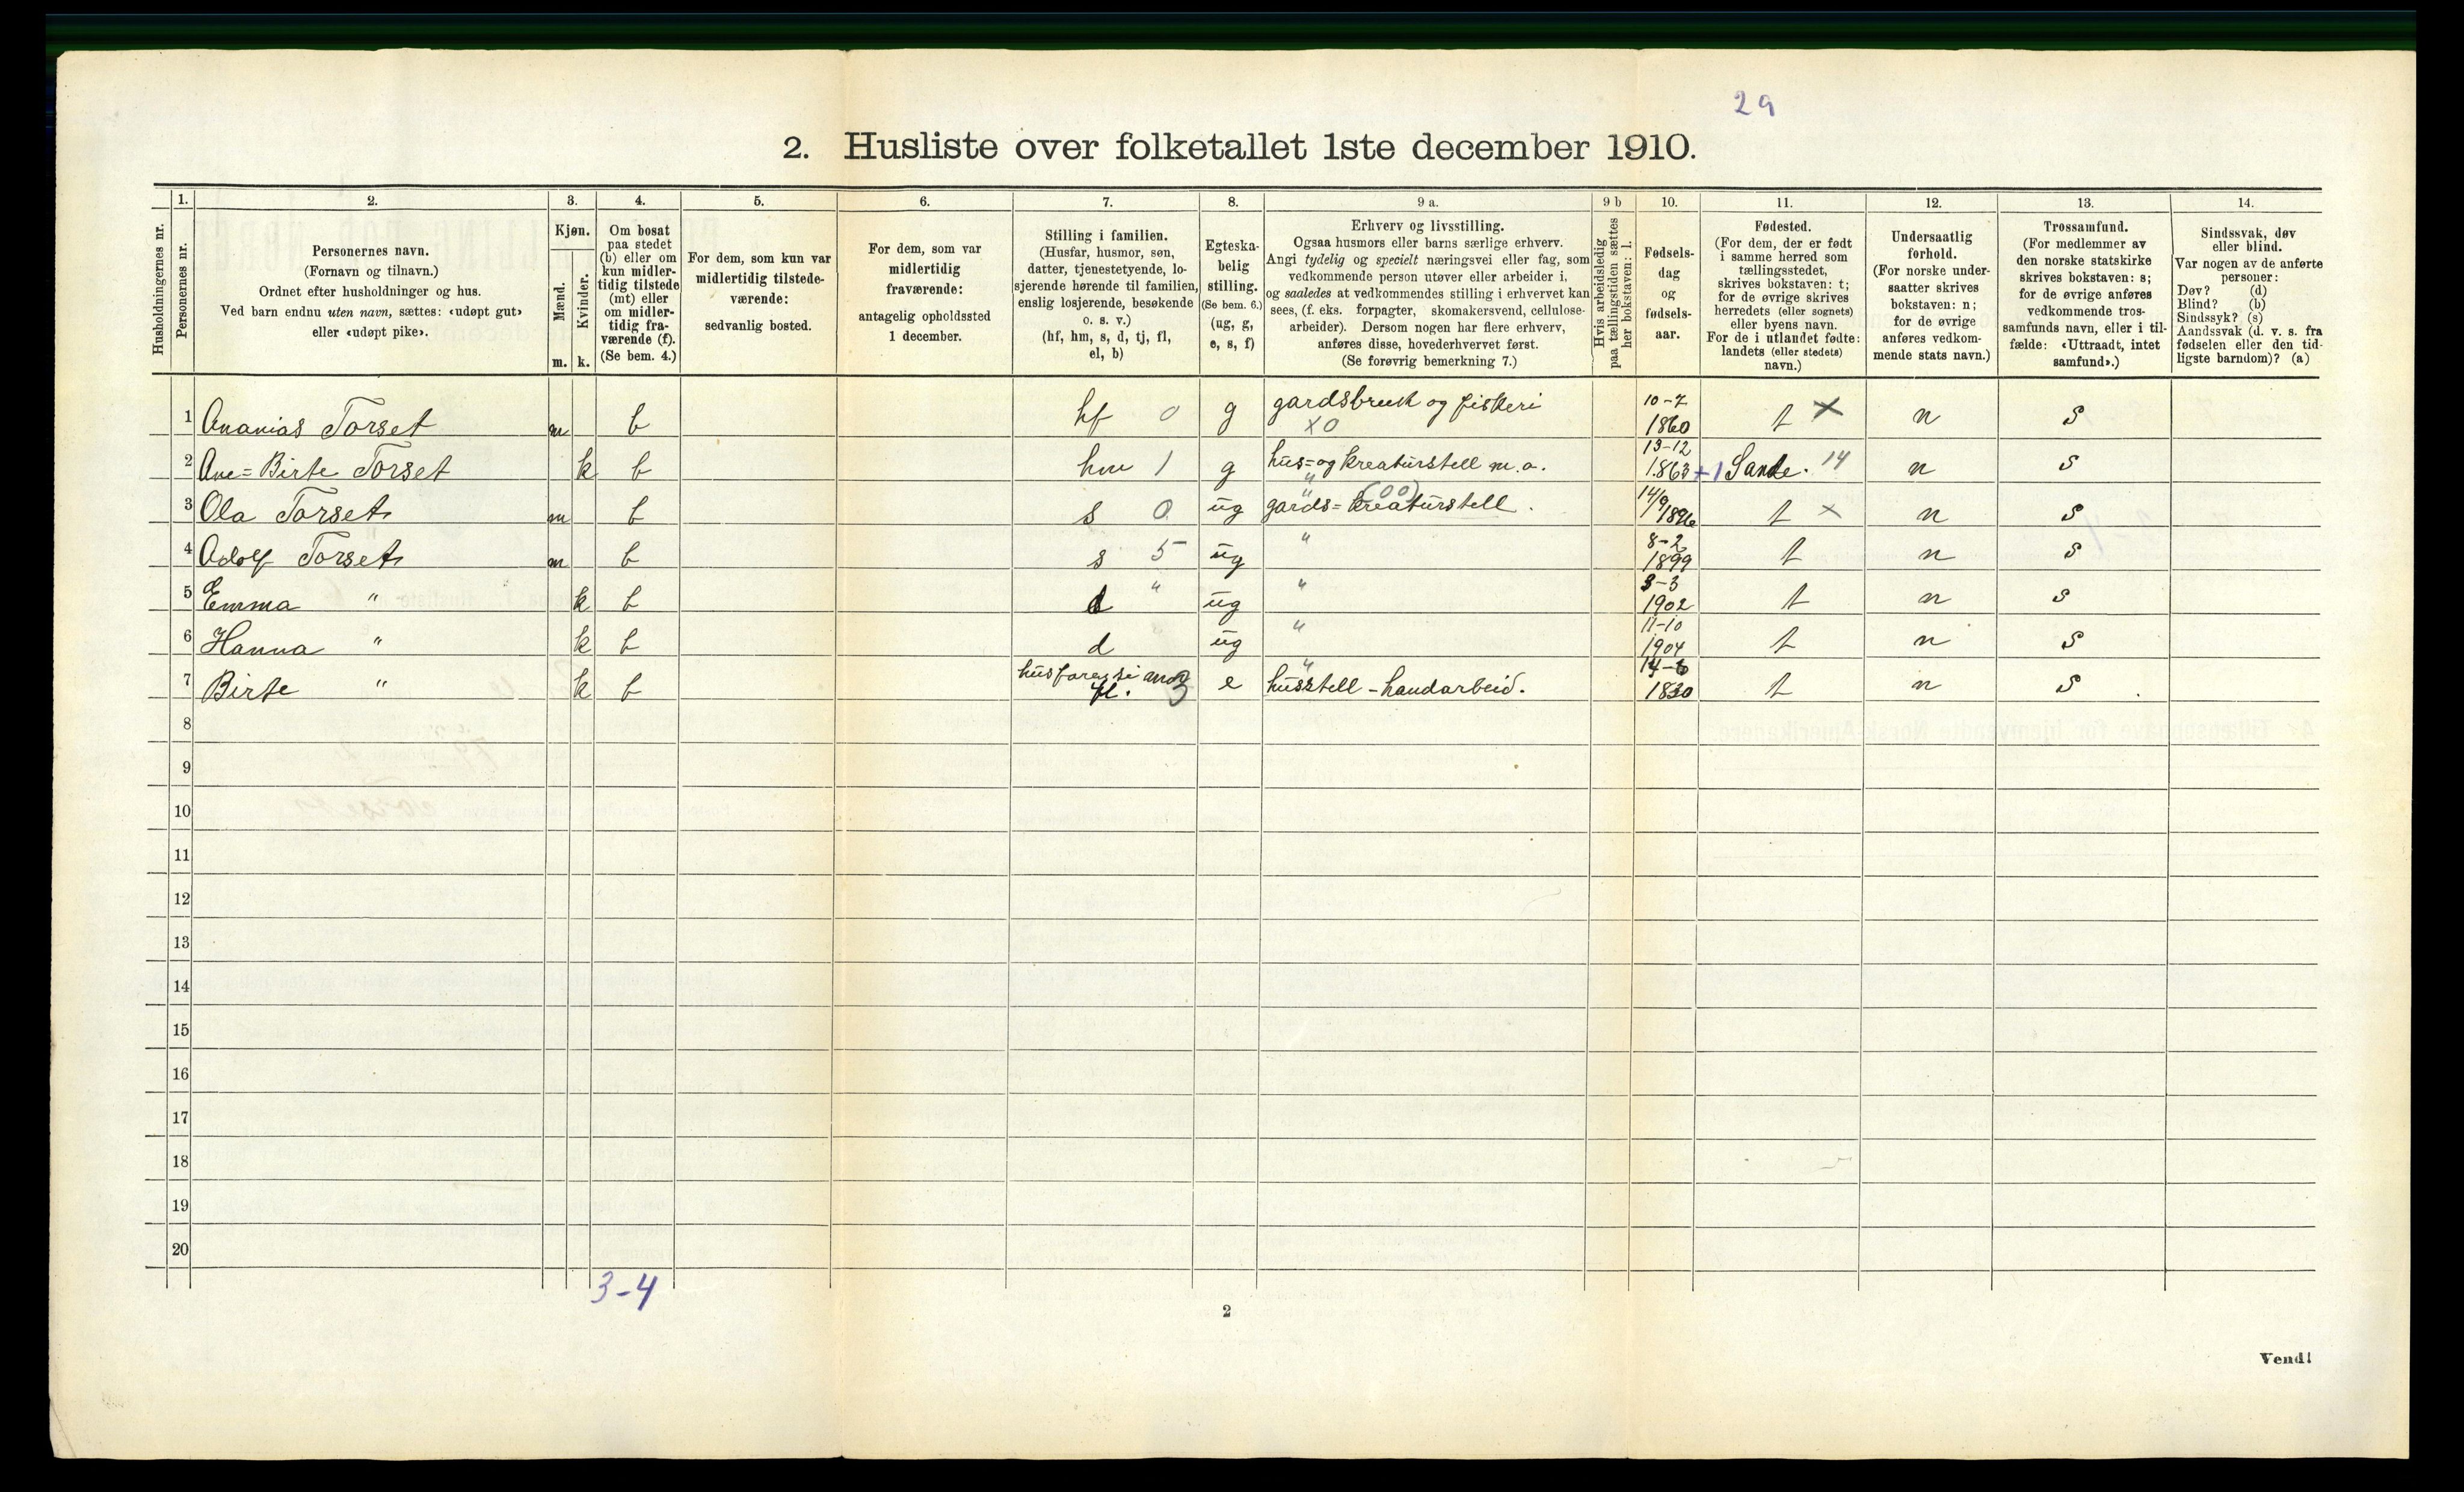 29
2. Husliste over folketallet 1ste december 1910.
Husholdningernes nr.
1. Personernes nr.
2. Personernes navn.
(Fornavn og tilnavn.)
Ordnet efter husholdninger og hus.
Ved barn endnu uten navn, sættes: «udøpt gut»
eller «udøpt pike».
3. Kjøn.
Mænd. m.
Kvinder. k.
4. Om bosat
paa stedet
(b) eller om
kun midler-
tidig tilstede
(mt) eller
om midler-
tidig fra-
værende (f).
(Se bem. 4.)
5. For dem, som kun var
midlertidig tilstede-
værende:
sedvanlig bosted.
6. For dem, som var
midlertidig
fraværende:
antagelig opholdssted
1 december.
7. Stilling i familien.
(Husfar, husmor, søn,
datter, tjenestetyende, lo-
sjerende hørende til familien,
enslig losjerende, besøkende
o. s. v.)
(hf, hm, s, d, tj, fl,
el, b)
8. Egteska-
belig
stilling.
(Se bem. 6.)
(ug, g,
e, s, f)
9 a. Erhverv og livsstilling.
Ogsaa husmors eller barns særlige erhverv.
Angi tydelig og specielt næringsvei eller fag, som
vedkommende person utøver eller arbeider i,
og saaledes at vedkommendes stilling i erhvervet kan
sees, (f. eks. forpagter, skomakersvend, cellulose-
arbeider). Dersom nogen har flere erhverv,
anføres disse, hovederhvervet først.
(Se forøvrig bemerkning 7.)
9 b Hvis arbeidsledig
paa tællingstiden sættes
her bokstaven: l.
10. Fødsels-
dag
og
fødsels-
aar.
11. Fødested.
(For dem, der er født
i samme herred som
tællingsstedet,
skrives bokstaven: t;
for de øvrige skrives
herredets (eller sognets)
eller byens navn.
For de i utlandet fødte:
landets (eller stedets)
navn.)
12. Undersaatlig
forhold.
(For norske under-
saatter skrives
bokstaven: n;
for de øvrige
anføres vedkom-
mende stats navn.)
13. Trossamfund.
(For medlemmer av
den norske statskirke
skrives bokstaven: s;
for de øvrige anføres
vedkommende tros-
samfunds navn, eller i til-
fælde: «Uttraadt, intet
samfund».)
14. Sindssvak, døv
eller blind.
Var nogen av de anførte
personer:
Døv? (d)
Blind? (b)
Sindssyk? (s)
Aandssvak (d. v. s. fra
fødselen eller den tid-
ligste barndom)? (a)
1 Ananias Torset m b hf 0 g gardsbruk og fiskeri X0 10-7 1860 t X n s
2 Ane=Birte Torset k b hm 1 g hus=og kreaturstell m.a. " 13-12 1863 +1 Sande. 14 n s
3 Ola Torset m b s 0 ug gards=kreaturstell. " (00) 14/9 1896 t X n s
4 Adolf Torset m b s 5 ug " 8-2 1899 t n s
5 Emma " k b d " ug " 3-3 1902 t n s
6 Hanna " k b d ug " 11-10 1904 t n s
7 Birte " k b husfares si mor fl. 3 e husstell - handarbeid. " 14-6 1830 t n s
8
9
10
11
12
13
14
15
16
17
18
19
20
3-4
2
Vend!